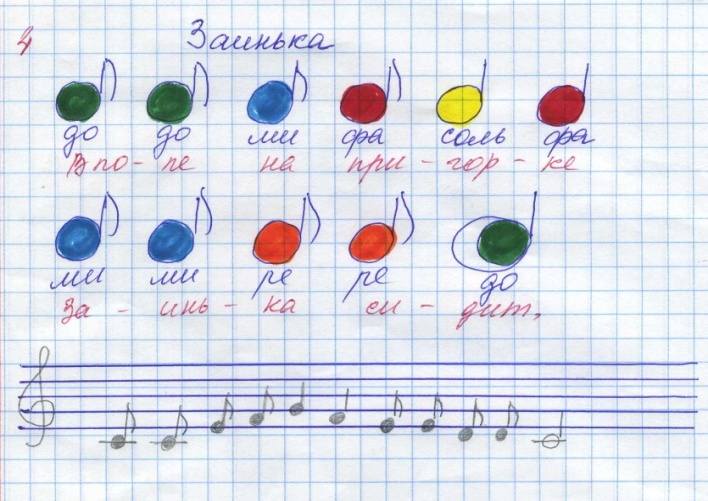 4 Заинька
до до ми фа соль фа
В по- ле на при - гор - ке
ми ми ре ре до
за - инь - ка си - дит.